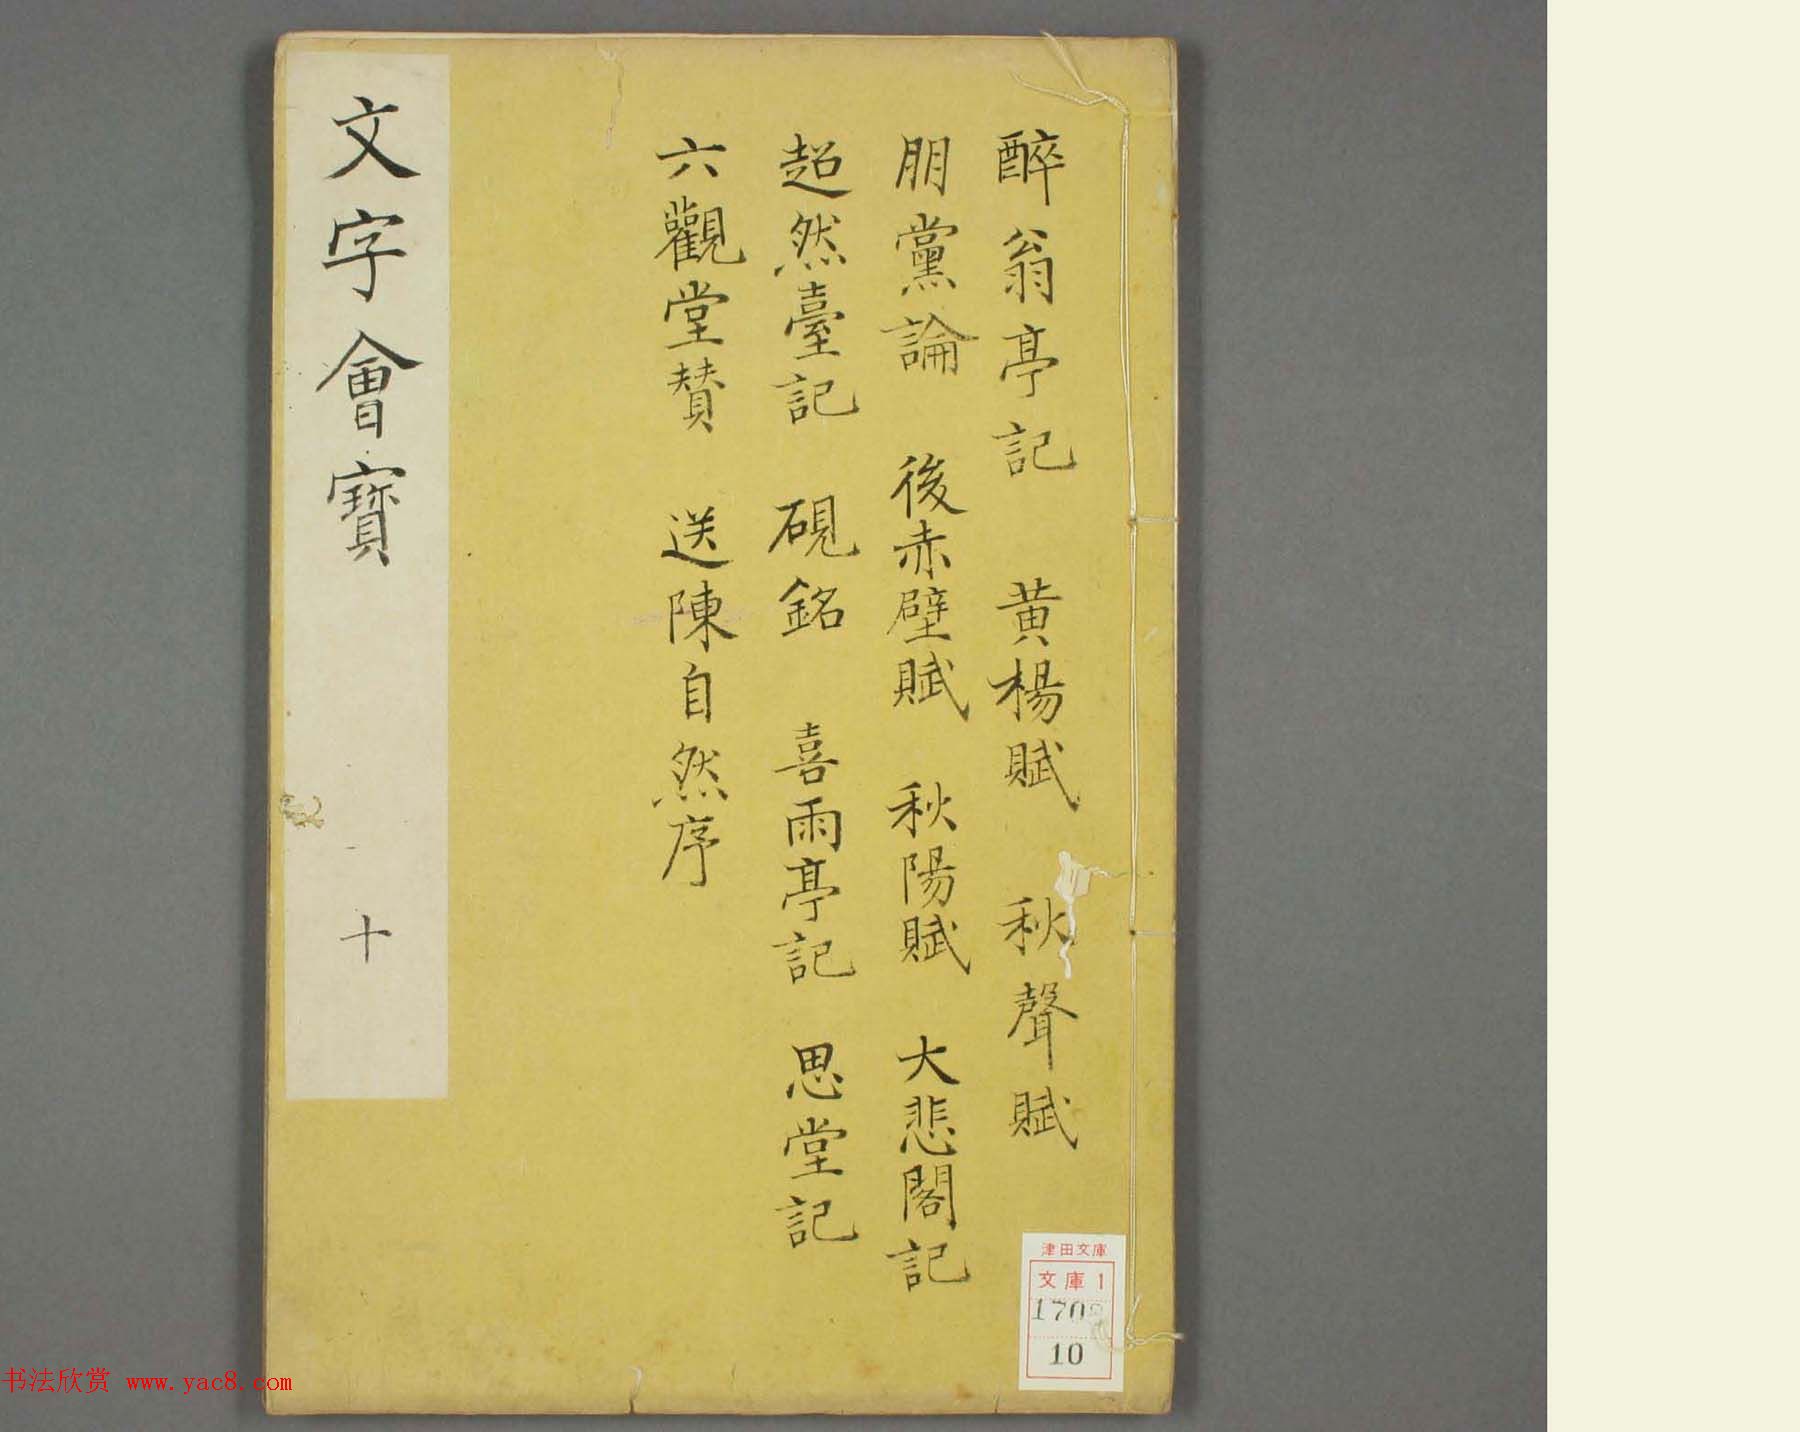 醉翁亭記 黄楊賦 秋聲賦
朋黨論 後赤壁賦 秋陽賦 大悲閣記
超然臺記 硯銘 喜雨亭記 思堂記
六觀堂賛 送陳自然序
文字會寳 十
津田文庫
文庫1
170
10
书法欣赏 www.yac8.com